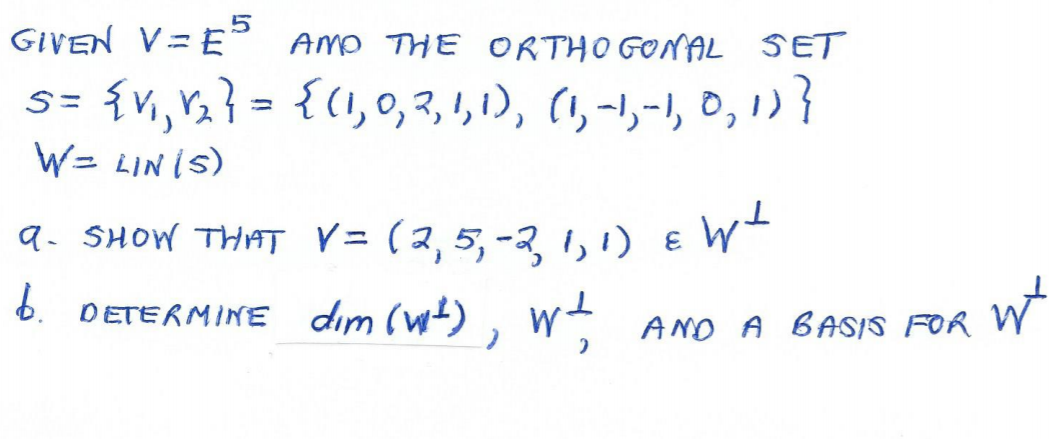 GIVEN V = E⁵ AND THE ORTHOGONAL SET
S = {V₁, V₂} = {(1, 0, 2, 1, 1), (1, -1, -1, 0, 1)}
W = LIN(S)
a. SHOW THAT V = (2, 5, -2, 1, 1) ε W⊥
b. DETERMINE dim(W⊥), W⊥, AND A BASIS FOR W⊥